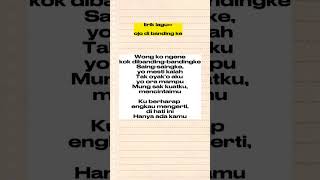 lirik lagu
ojo di banding ke
Wong ko ngene
kok dibanding-bandingke
Saing-saingke,
yo mesti kalah
Tak oyak'o aku
yo ora mampu
Mung sak kuatku,
mencintaimu
Ku berharap
engkau mengerti,
di hati ini
Hanya ada kamu